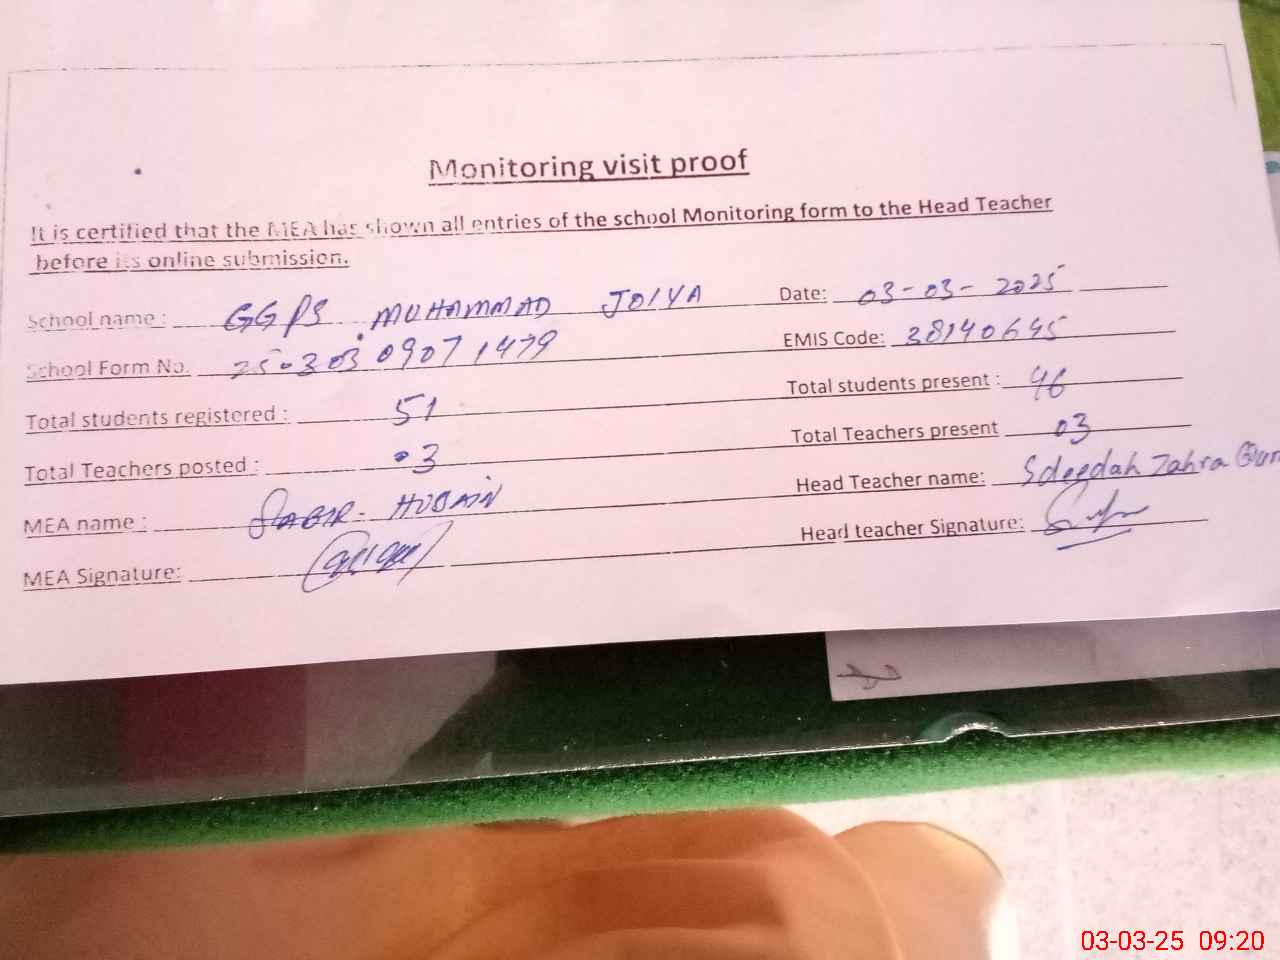 Monitoring visit proof
It is certified that the MEA has shown all entries of the school Monitoring form to the Head Teacher
before its online submission.
School name : GGPS MUHAMMAD JOIYA Date: 03-03-2025
School Form No. EMIS Code: 38140645
Total students registered : 51 Total students present : 46
Total Teachers posted : 03 Total Teachers present 03
MEA name : SABIR HUSAIN Head Teacher name: Zahra
MEA Signature: Head teacher Signature:
03-03-25 09:20